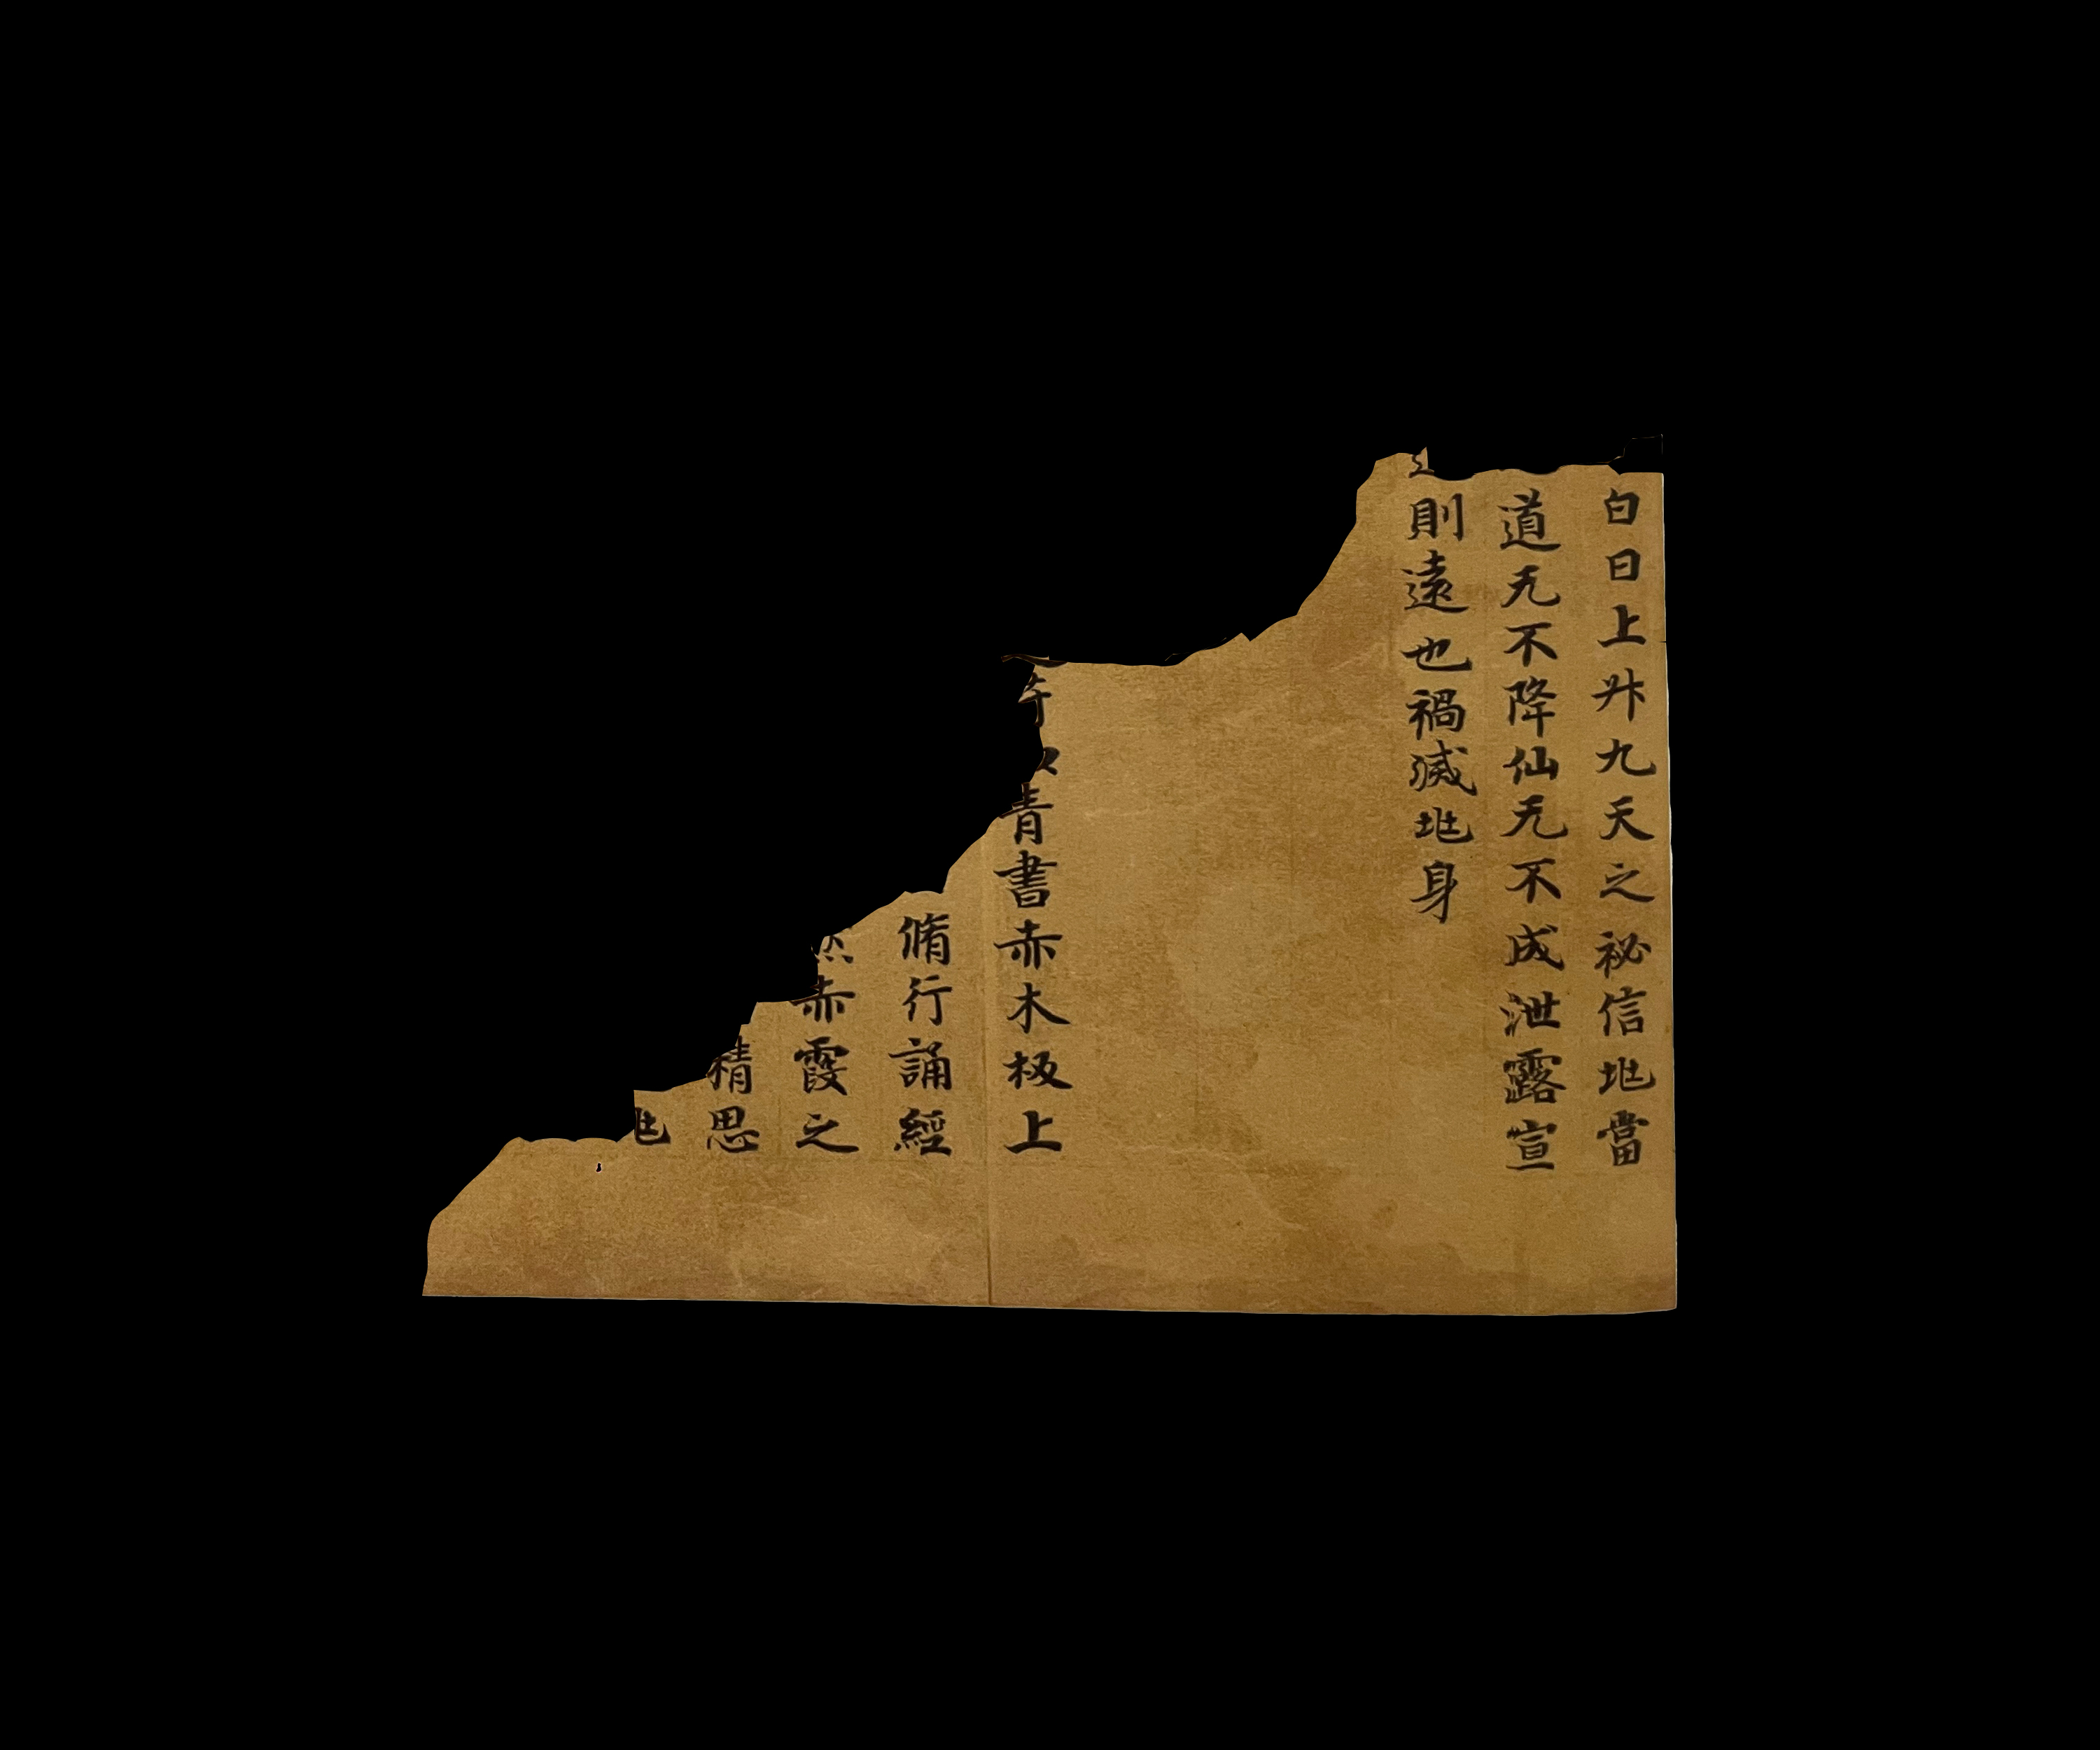 白日上升九天之祕信地當
道无不降仙无不成泄露宣
則遠也禍滅地身
青書赤木板上
脩行誦經
赤霞之
精思
地